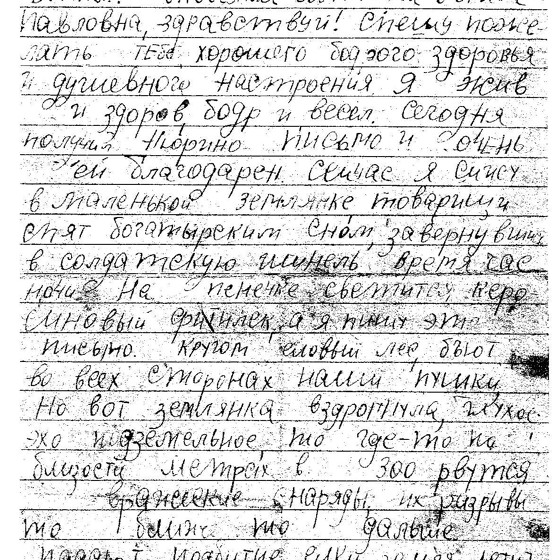 Павловна, здравствуй! Спешу поже-
лать тебе хорошего бодрого здоровья
и душевного настроения Я жив
и здоров, бодр и весел. Сегодня
получил Нюрино письмо и очень
ей благодарен сейчас я сижу
в маленькой землянке товарищи
спят богатырским сном, завернувшись
в солдатскую шинель время час
ночи На печечке светится керо
синовый фитилек, а я пишу это
письмо. Кругом еловый лес, бьют
во всех сторонах наши пушки,
Но вот землянка вздрогнула, глухое
эхо подземельное то где-то по
близости метрах в 300 рвутся
вражеские снаряды, их разрывы
то ближе то дальше
падают подбитые елки земля летит